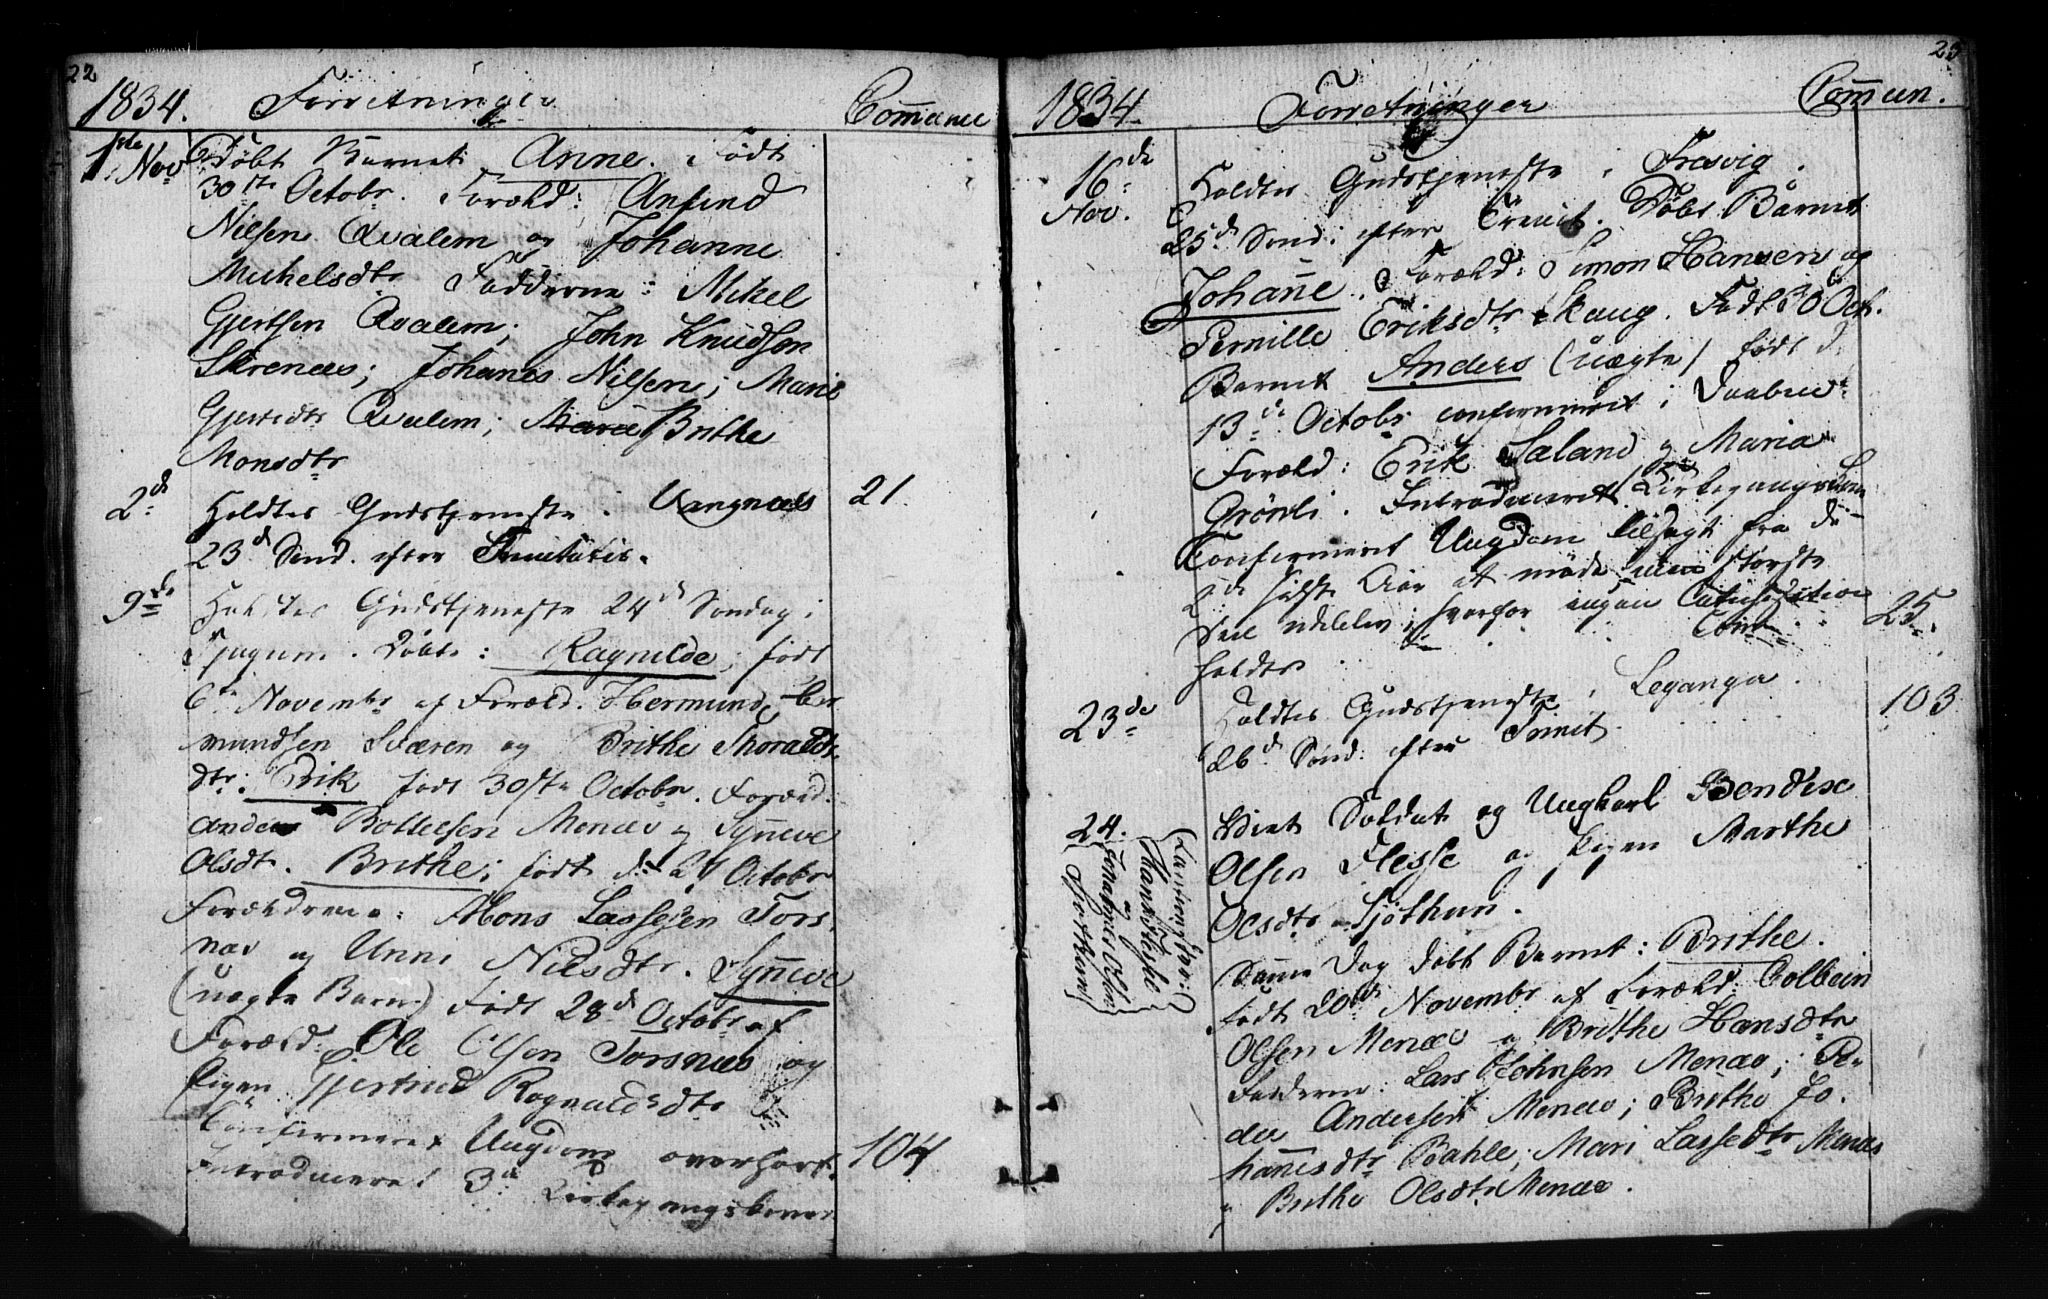 22
1834. Forretninger Commune
1ste Nov Døbt Barnet Anne. Født
30te Octobr. Foræld: Anfind
Nielsen Qvalem og Johanne
Michelsdtr Fadderne: Mikel
Gjertsen Qvalem; John Knudsen
Johanes Nilsen; Marie
Gjertsdtr Qvalem; Marie Brithe
Monsdtr
2d Holdtes Gudstjeneste i Vangnæs 21.
23d Sønd. efter Trinitatis.
9de Holdtes Gudstjeneste 24d Søndag i
Tjugum. Døbt: Ragnilde; født
6te Novembr af Foræld. Hermund Her
mundsen Sværen og Brithe Thoralds
dtr: Erik født 30te Octobr. Foræld.
Anders Botlelsen Menæs og Sÿneve
Olsdtr. Brithe; født d. 21 Octobr
Forældrene: Mons Lassesen Tors
næs og Unni Nielsdtr. Sÿneve
(uægte Barn) født 28d Octobr af
Foræld: Ole Olsen Torsnæs og
Pigen Gjertrud Rognaldsdtr
Confirmeret Ungdom overhørt. 104
Introduceret 3de Kirkegangskoner
23
1834. Forretninger Commun.
16de Nov. Holdtes Gudstjeneste i Fresvig.
25d Sønd: efter Trinit. Døbt Barnet
Johañe. Foræld: Simon Hansen og
Pernille Eriksdtr Skaug. Født 30 Oct.
Barnet Anders (uægte) født d.
13de Octobr confirmeret i Daaben.
Foræld: Erik Saland og Maria
Grönli. Introduceret Kirkegangskone
Confirmeret Ungdom tilsagt fra de
2de sidste Aar at møde, men største
Deel udeblev; hvorfor ingen Catechisation 25.
holdtes
23de Holdtes Gudstjeneste i Leganger. 103
26d Sønd: efter Trinit.
24. Viet Soldat og Ungkarl Bendix
Olsen Flesje og Pigen Marthe
Olsdtr Sjøthun.
Hans Fleske
Johannes Olsen
Samme Dag døbt Barnet: Brithe.
født 20de Novembr af Foræld: Colbein
Olsen Menæs og Brithe Hansdtr
Fadderne: Lars Johnsen Menæs; Pe-
der Andersen Menæs; Brithe Jo-
hañesdtr Bahle; Mari Lassedtr Menæs
og Brithe Olsdtr Menæs.